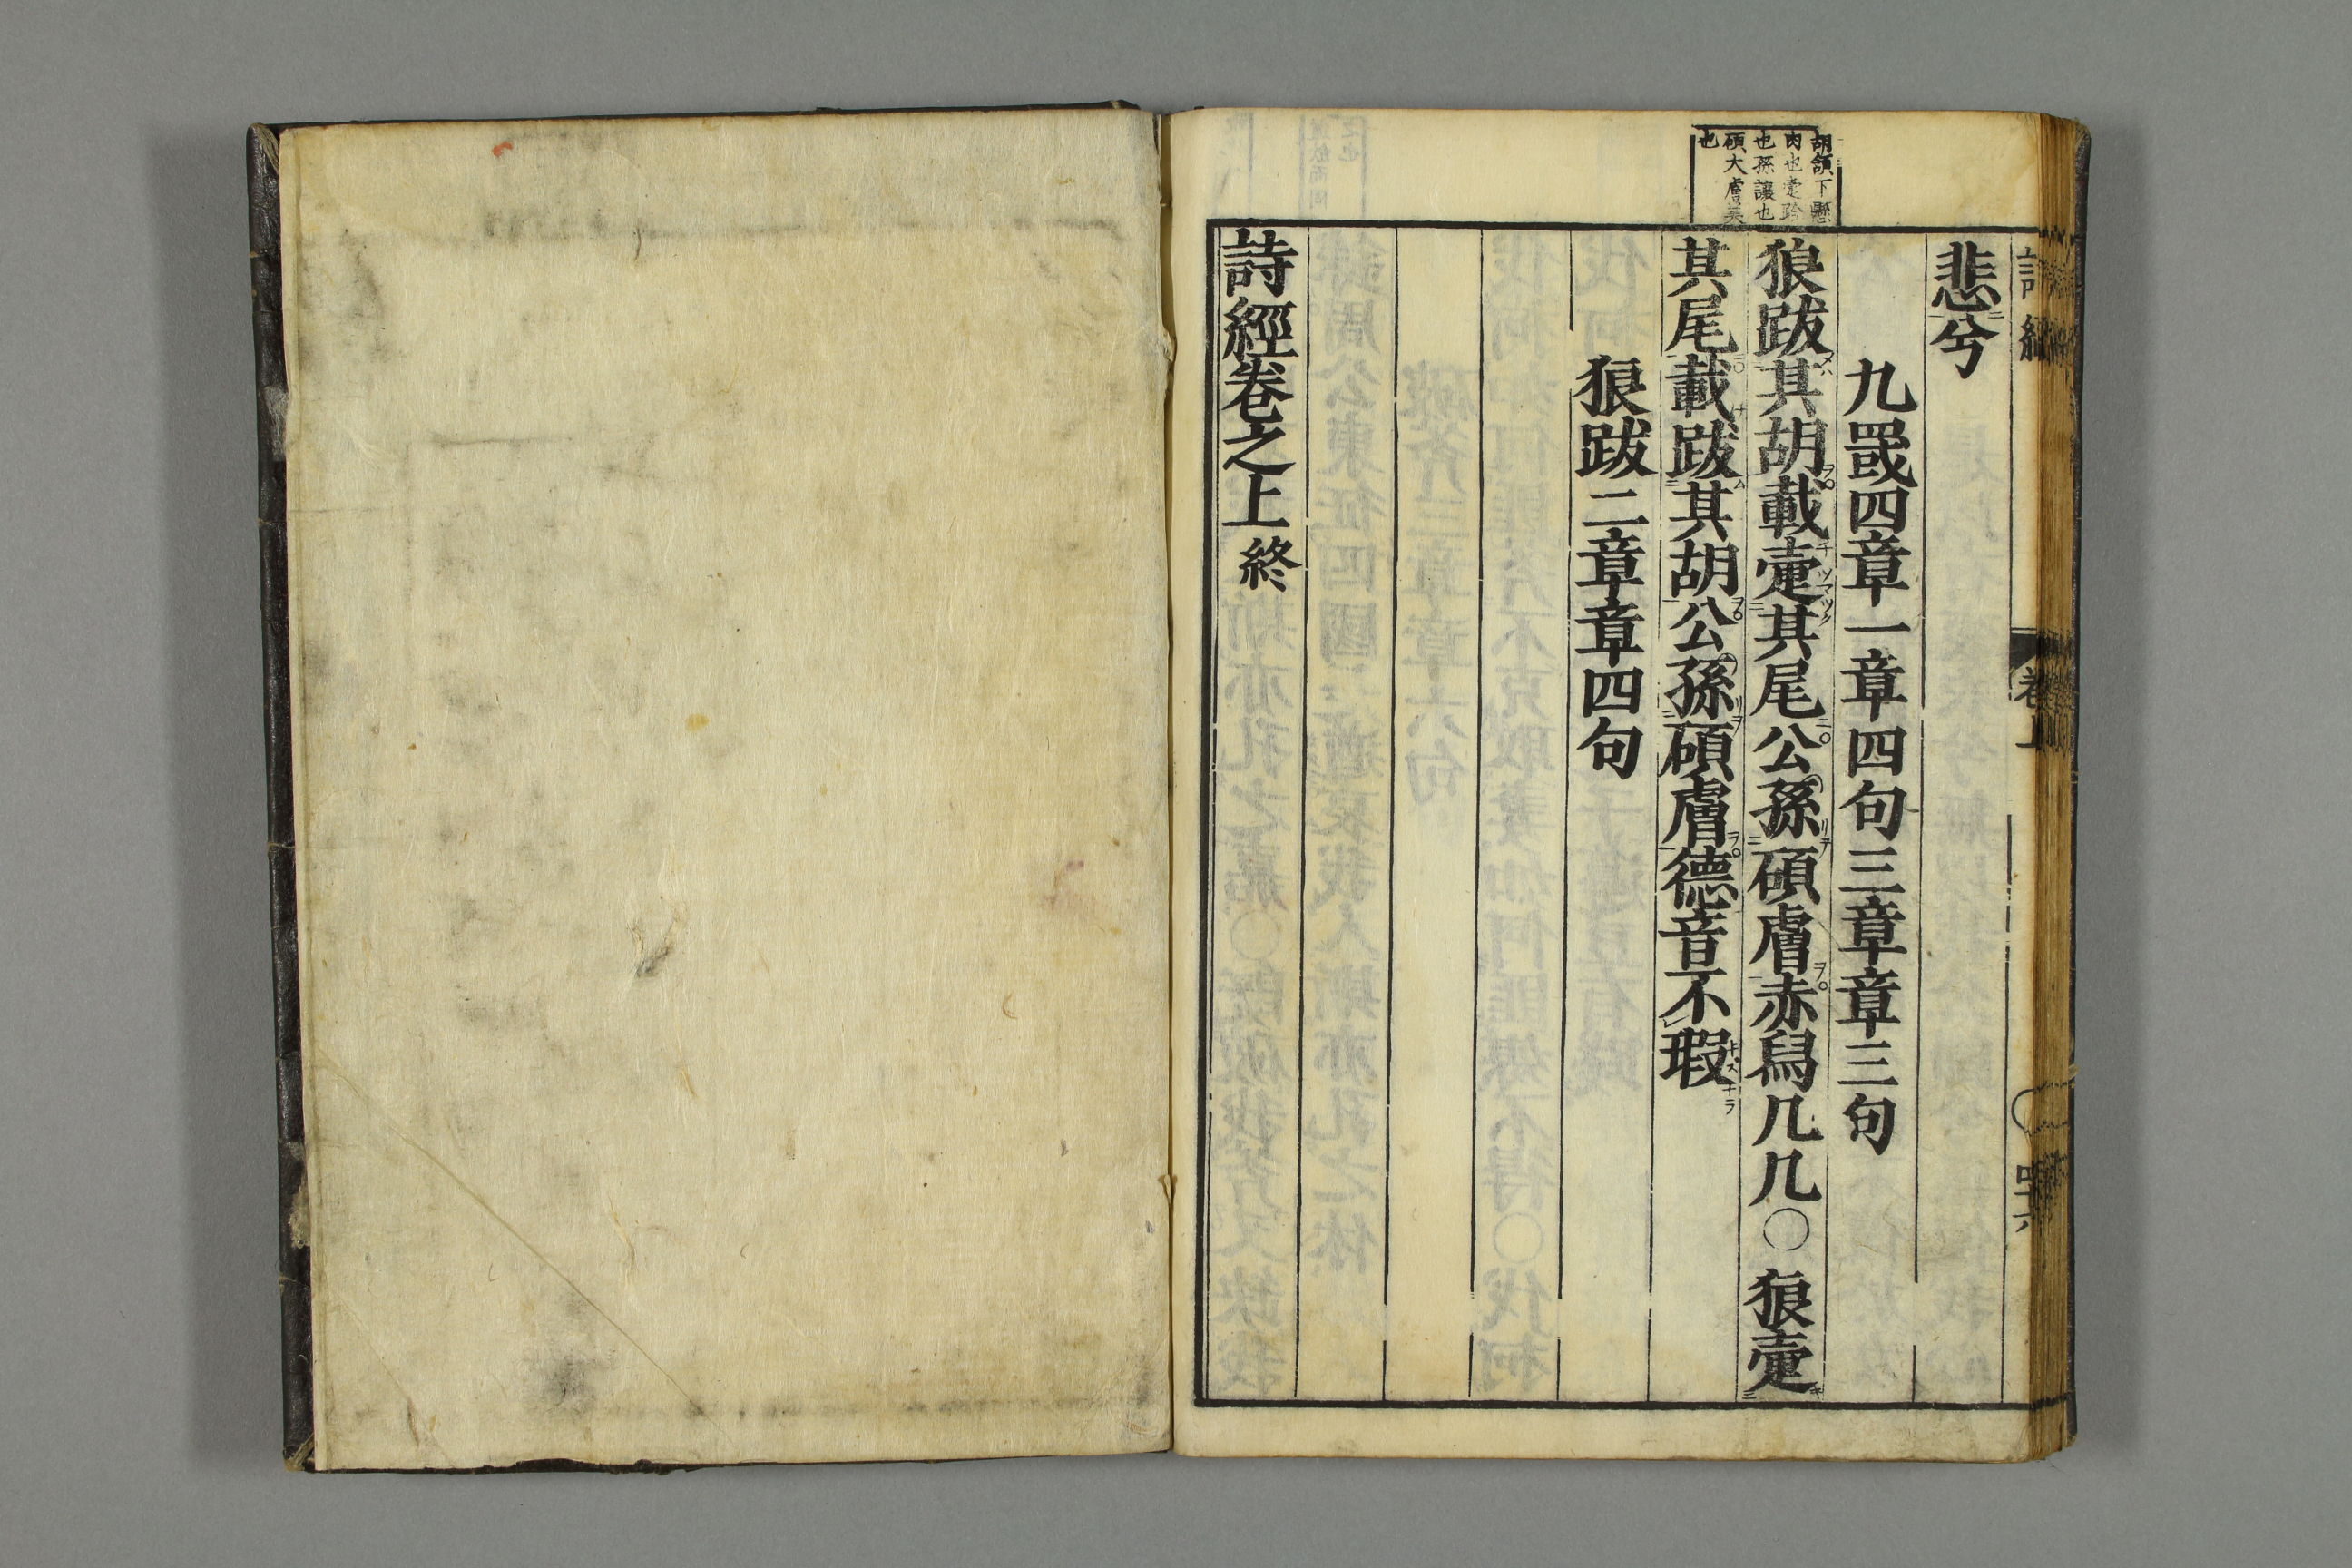 悲兮
九罭四章一章四句三章章三句
狼跋其胡載疐其尾公孫碩膚赤舄几几○狼疐
其尾載跋其胡公孫碩膚德音不瑕
狼跋二章章四句
詩經卷之上終
胡頷下懸
肉也疐跲
也孫讓也
碩大膚美
也
詩經
卷上
四十六